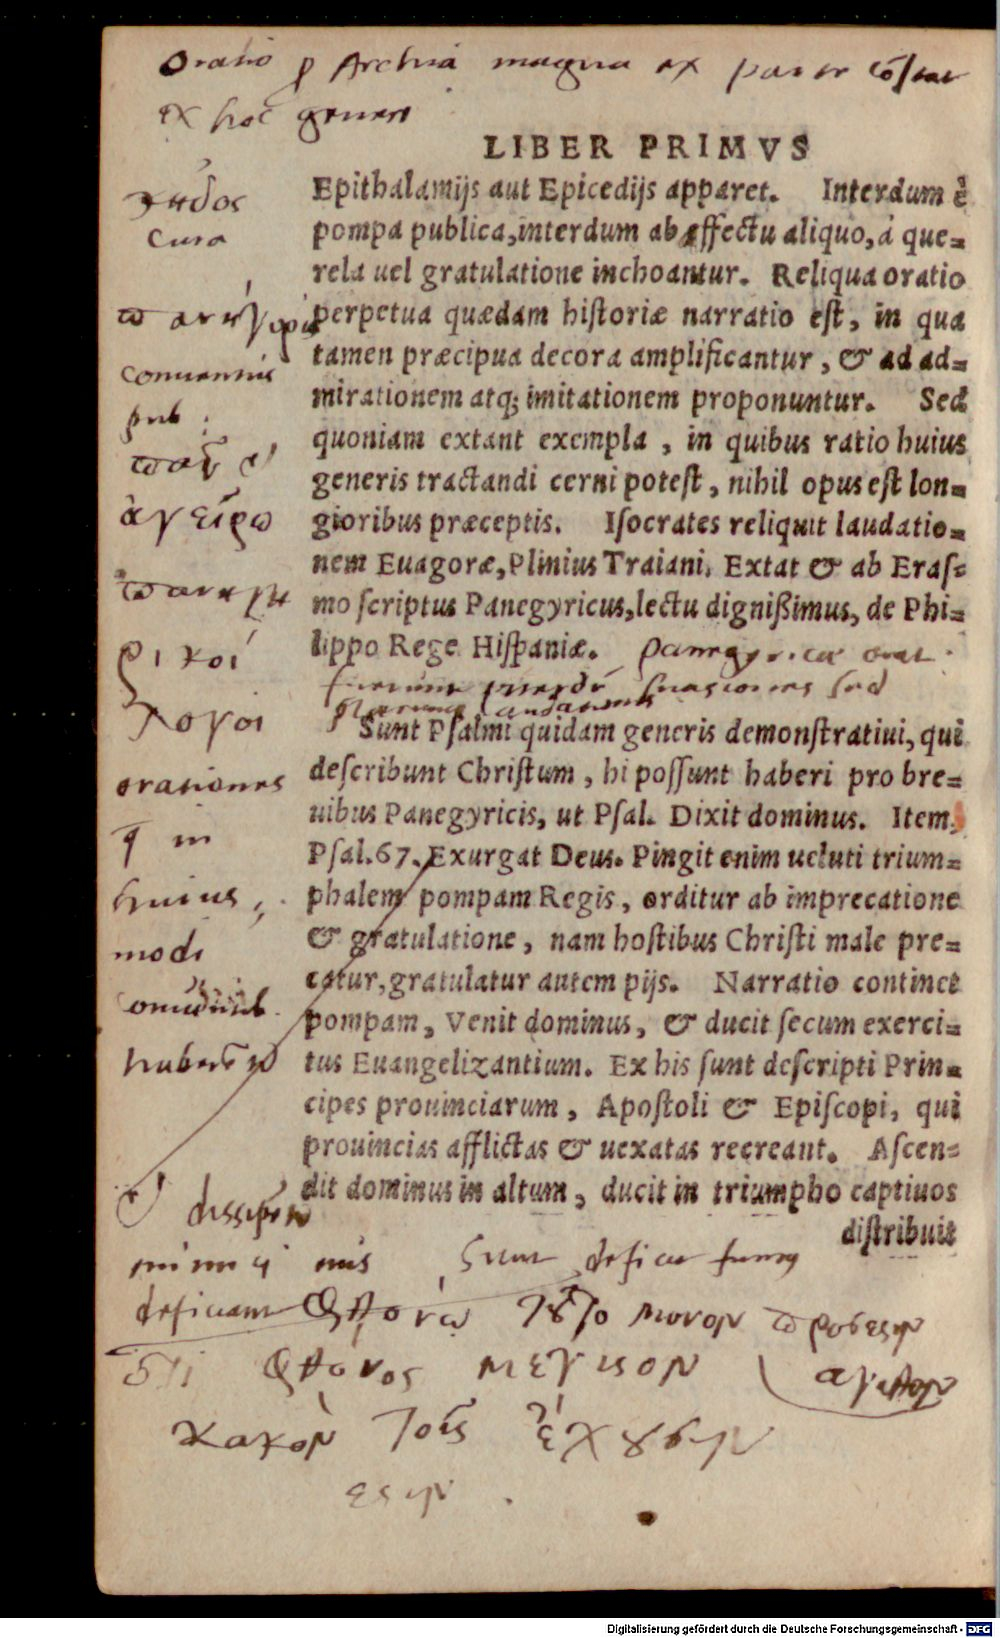 Oratio ꝑ Archia magna ex parte cōstat
ex hoc genere
LIBER PRIMVS
Epithalamijs aut Epicedijs apparet. Interdum è
pompa publica, interdum ab affectu aliquo, à que=
rela uel gratulatione inchoantur. Reliqua oratio
perpetua quædam historiæ narratio est, in qua
tamen præcipua decora amplificantur, & ad ad=
mirationem atq; imitationem proponuntur. Sed
quoniam extant exempla, in quibus ratio huius
generis tractandi cerni potest, nihil opus est lon=
gioribus præceptis. Isocrates reliquit laudatio=
nem Euagoræ, Plinius Traiani. Extat & ab Eras=
mo scriptus Panegyricus, lectu dignißimus, de Phi=
lippo Rege Hispaniæ.
κῆδος
cura
conuentus
pub:
ἀγείρω
ρικοί
λόγοι
orationes
q̄ in
huius
modi
suasiones sed
Sunt Psalmi quidam generis demonstratiui, qui
describunt Christum, hi possunt haberi pro bre=
uibus Panegyricis, ut Psal. Dixit dominus. Item,
Psal. 67. Exurgat Deus. Pingit enim ueluti trium=
phalem pompam Regis, orditur ab imprecatione
& gratulatione, nam hostibus Christi male pre=
catur, gratulatur autem pijs. Narratio continet
pompam, Venit dominus, & ducit secum exerci=
tus Euangelizantium. Ex his sunt descripti Prin=
cipes prouinciarum, Apostoli & Episcopi, qui
prouincias afflictas & uexatas recreant. Ascen=
dit dominus in altum, ducit in triumpho captiuos
distribuit
μόνον πρόσεστιν
ὅτι φθόνος μέγιστον ἀγαθόν
κακὸν τοῖς ἔχουσιν
ἐστιν
Digitalisierung gefördert durch die Deutsche Forschungsgemeinschaft - DFG